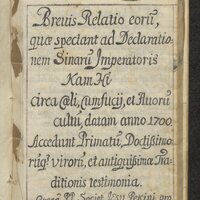 Brevis Relatio eorū,
quæ spectant ad Declaratio-
nem Sinarū Imperatoris
Kam Hi
circa Cæli, Cumfucij, et Avorū
cultū, datam anno 1700.
Accedunt Primatū, Doctißimo-
rūq3 virorū, et antiquißimæ Tra-
ditionis testimonia.
Operâ PP. Societ. Jesu Pekini pro